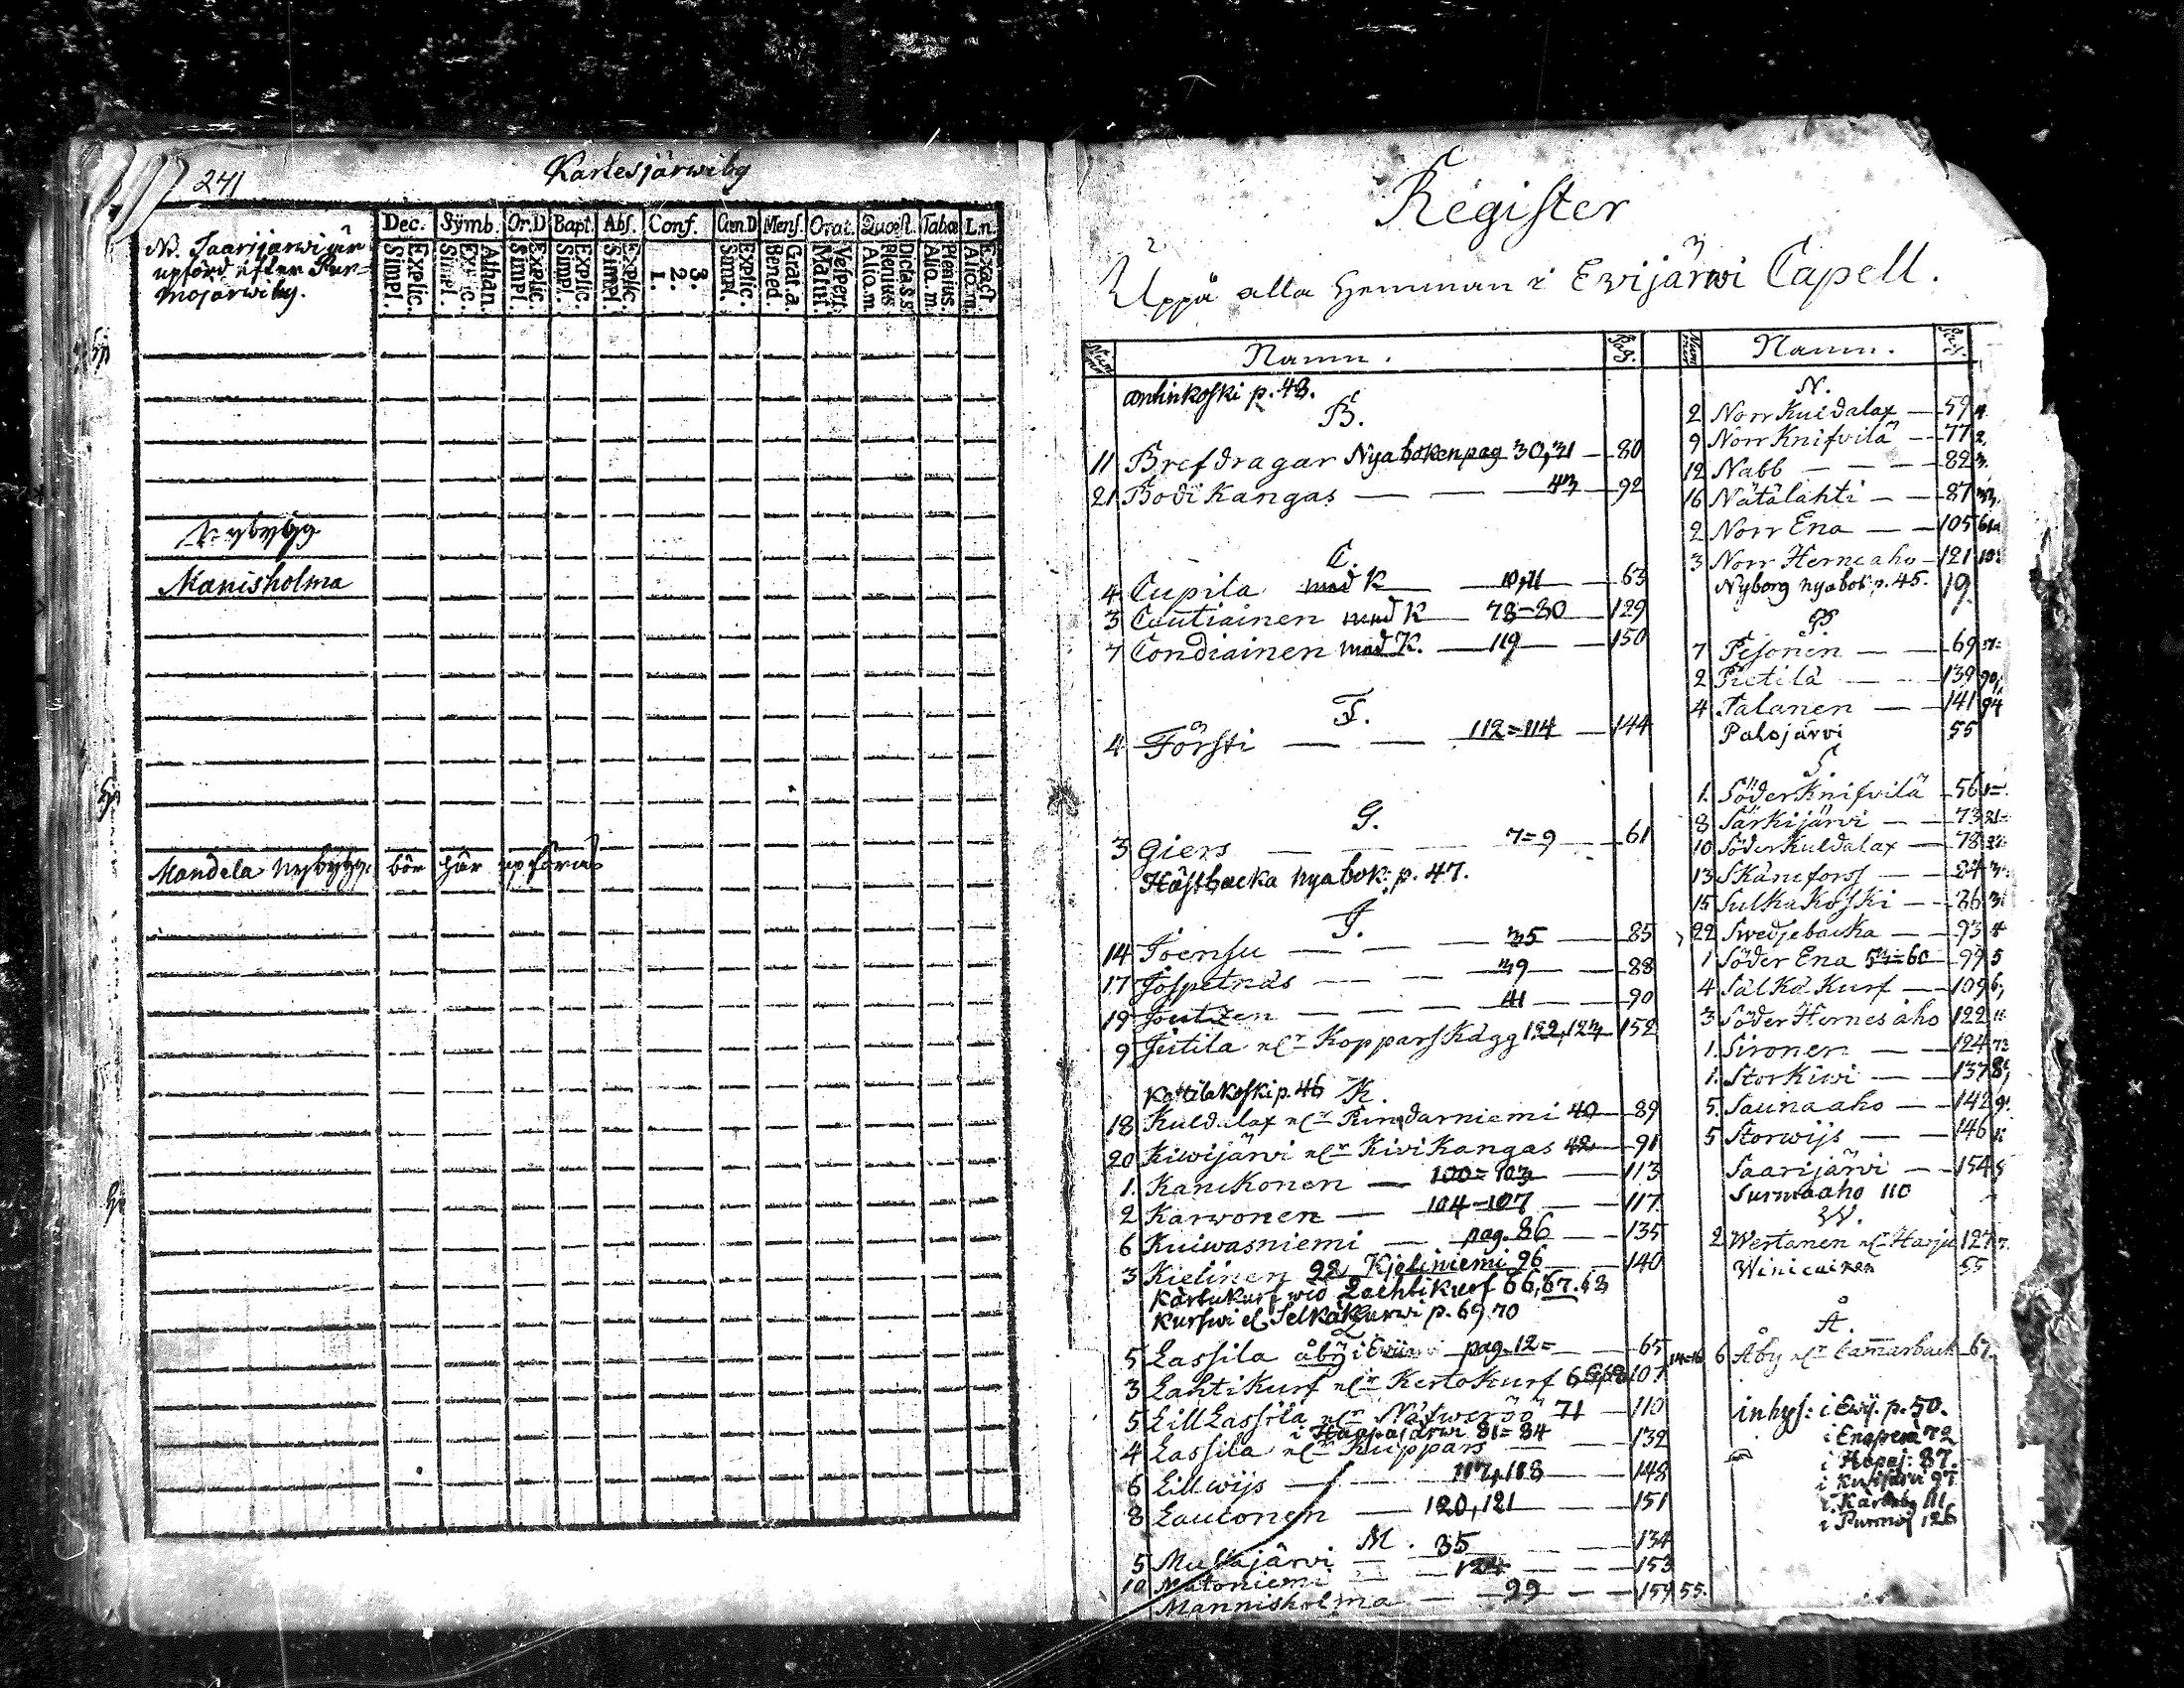 241
Kartesjärwiby
N. Saarijärwi är
upförd efter Pur=
mojärwiby.
Dec. Symb. Or.D Bapt. Abs. Conf. Cœn.D Mens. Orat. Quæst. Tabœ L.n.
Explic. Simpl. Athan. Explic. Simpl. Explic. Simpl. Explic. Simpl. Explic. Simpl. 3. 2. 1. Explic. Simpl. Grat.a. Bened. Vespert. Matut. Dicta.s.s Plenius Aliq.m Plenius. Aliq.m Exact Aliq.m
Nybygg
Manisholma
Mandela Nybygg: bör här upföras
Register
Uppå alla Hemman i Ewijärwi Capell.
Namn. Pag.
antinkoski p. 48.
B.
11 Brefdragar Nya boken pag 30, 31 80
21 Bodikangas 43 92
C.
4 Cupila med K 10, 11 63
3 Cautiainen med K 78=80 129
7 Condiainen med K. 119 150
F.
4 Försti 112=114 144
G.
3 Giers 7=9 61
Hästbacka nya bok: p. 47.
J.
14 Joensu 35 85
17 Jospetnäs 39 88
19 Joutzen 41 90
9 Jutila Kopparskägg 122, 123 152
Kattilakoski p. 46 K.
18 Kuldalax Rindarniemi 40 89
20 Kiwijärvi Kivikangas 42 91
1. Kanikonen 100=103 113
2 Karwonen 104-107 117
6 Kuiwasniemi pag. 86 135
3 Kielinen 92 Kjeliniemi 96 140
Kärtukurf wid Lachtikurf 66, 67. 68
Kurfwi el. Selkäkurwi p. 69. 70
5 Lassila åby i pag. 12= 65
3 Lahtikurf Kertokurf 107
5 Lill Lassila 71 110
i Happajärwi 81=84
4 Lassila Kuppars 132
6 Lillwijs 117, 118 148
8 Lautonen 120, 121 151
M.
5 Multajärvi 35 134
10 Matoniemi 124 153
Mannisholma 99 159 55.
Namn.
N.
2 Norr Kuldalax 59
9 Norr Knifvilä 77
12 Nabb 82
16 Nätälahti 87
2 Norr Ena 105
3 Norr Herneaho 121
Nyborg nya bok p. 45. 19
P
7 Pesonen 69
2 Pietilä 139
4 Palanen 141 94
Palojärvi 55
S
1. Söder Knifvilä 56
8 Särkijärvi 73
10 Söderkuldalax 78
13 Skänsforss 84
15 Sulkakoski 86
22 Swedjebacka 93
1 Söder Ena 57=60 99
4 Sälkä Kurf 109
3 Söder Hernesaho 122
1. Sironen 124 73
1. Storkiwi 137
5. Saunaaho 142
5 Storwijs 146
Saarijärvi 154
Surmaaho 110
W.
2 Wertanen Harju 127
Winicainen 55
Å.
6 Åby Camarback 67
inhys: i Ewij. p. 50.
i Enaperä 72
i Hapaj: 87.
i Kiwijärvi 97
i Karteby 111
i Purmoj 126